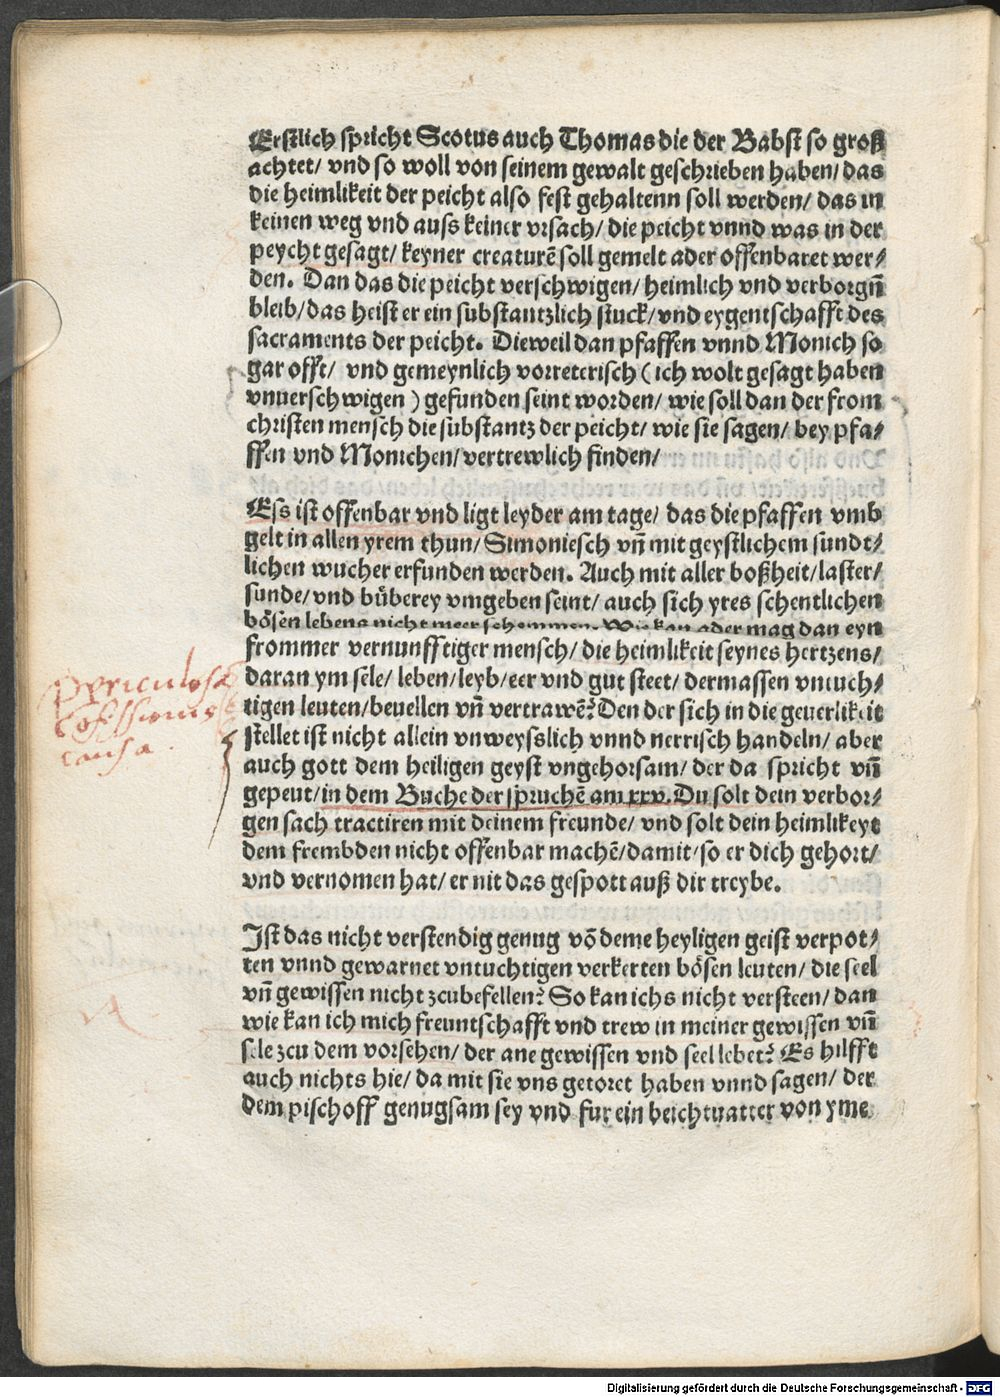 Erstlich spricht Scotus auch Thomas die der Babst so groß
achtet/ vnd so woll von seinem gewalt geschrieben haben/ das
die heimlikeit der peicht also fest gehaltenn soll werden/ das in
keinen weg vnd auss keiner vrsach/ die peicht vnnd was in der
peycht gesagt/ keyner creaturē soll gemelt ader offenbaret wer⸗
den. Dan das die peicht verschwigen/ heimlich vnd verborgn̄
bleib/ das heist er ein substantzlich stuck/ vnd eygentschafft des
sacraments der peicht. Dieweil dan pfaffen vnnd Monich so
gar offt/ vnd gemeynlich vorreterisch ( ich wolt gesagt haben
vnuerschwigen ) gefunden seint worden/ wie soll dan der from
christen mensch die substantz der peicht/ wie sie sagen/ bey pfa⸗
ffen vnd Monichen/ vertrewlich finden/
Ess ist offenbar vnd ligt leyder am tage/ das die pfaffen vmb
gelt in allen yrem thun/ Simoniesch vn̄ mit geystlichem sundt⸗
lichen wucher erfunden werden. Auch mit aller boßheit/ laster/
sunde/ vnd bůberey vmgeben seint/ auch sich yres schentlichen
bősen lebens nicht meer schemmen. Wie kan ader mag dan eyn
frommer vernunfftiger mensch/ die heimlikeit seynes hertzens/
daran ym sele/ leben/ leyb/ eer vnd gut steet/ dermassen vntuch⸗
tigen leuten/ beuellen vn̄ vertrawē? Den der sich in die geuerlikeit
stellet ist nicht allein vnweysslich vnnd nerrisch handeln/ aber
auch gott dem heiligen geyst vngehorsam/ der da spricht vn̄
gepeut/ in dem Buche der spruchē am xxv. Du solt dein verbor⸗
gen sach tractiren mit deinem freunde/ vnd solt dein heimlikeyt
dem frembden nicht offenbar machē/ damit/ so er dich gehort/
vnd vernomen hat/ er nit das gespott auß dir treybe.
periculosa
cōfessionis
causa.
Ist das nicht verstendig genug vō deme heyligen geist verpot⸗
ten vnnd gewarnet vntuchtigen verkerten bősen leuten/ die seel
vn̄ gewissen nicht zcubefellen? So kan ichs nicht versteen/ dan
wie kan ich mich freuntschafft vnd trew in meiner gewissen vn̄
sele zcu dem vorsehen/ der ane gewissen vnd seel lebet? Es hilfft
auch nichts hie/ da mit sie vns getoret haben vnnd sagen/ der
dem pischoff genugsam sey vnd fur ein beichtuatter von yme
Digitalisierung gefördert durch die Deutsche Forschungsgemeinschaft - DFG